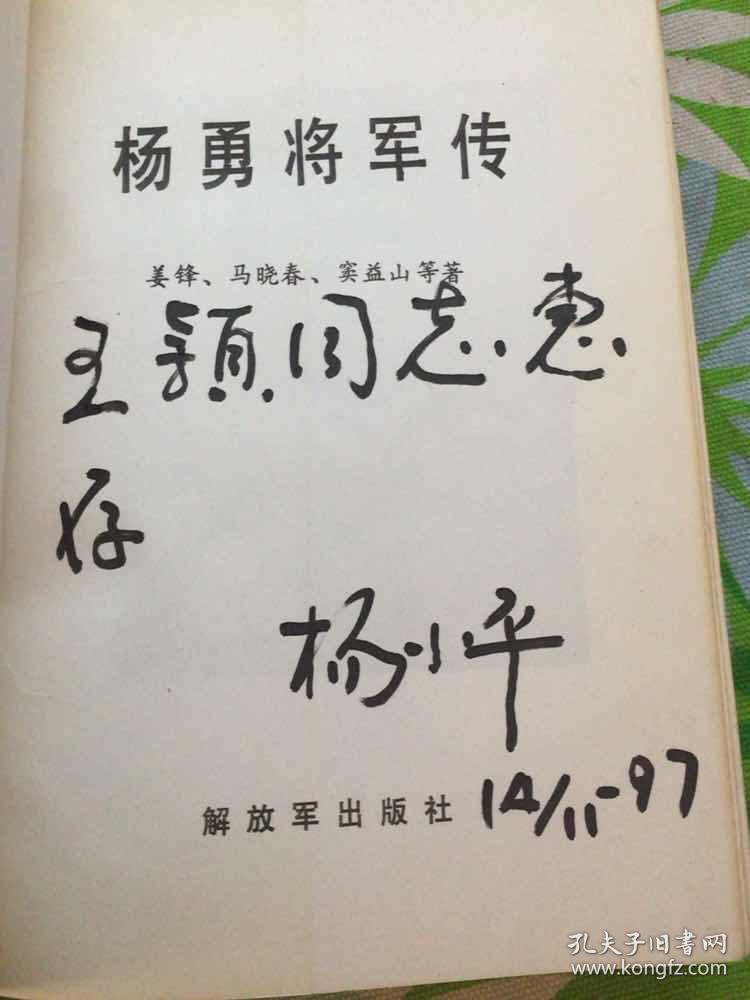 杨勇将军传
姜锋、马晓春、窦益山等著
王颖同志惠
存
杨小平
解放军出版社
14/11-97
孔夫子旧書网
www.kongfz.com